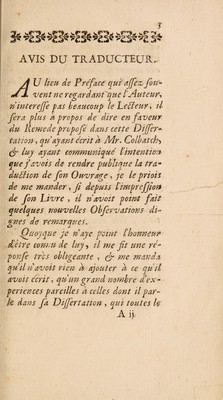 3
AVIS DU TRADUCTEUR.
AU lieu de Préface qui assez sou-
vent ne regardant que l'Auteur,
n'interesse pas beaucoup le Lecteur, il
sera plus à propos de dire en faveur
du Remede proposé dans cette Disser-
tation, qu'ayant écrit à Mr. Colbatch,
& luy ayant communiqué l'intention
que j'avois de rendre publique la tra-
duction de son Ouvrage, je le priois
de me mander, si depuis l'impression
de son Livre, il n'avoit point fait
quelques nouvelles Observations di-
gnes de remarques.
Quoyque je n'aye point l'honneur
d'être connu de luy, il me fit une ré-
ponse très obligeante, & me manda
qu'il n'avoit rien à ajouter à ce qu'il
avoit écrit, qu'un grand nombre d'ex-
periences pareilles à celles dont il par-
le dans sa Dissertation, qui toutes le
A ij